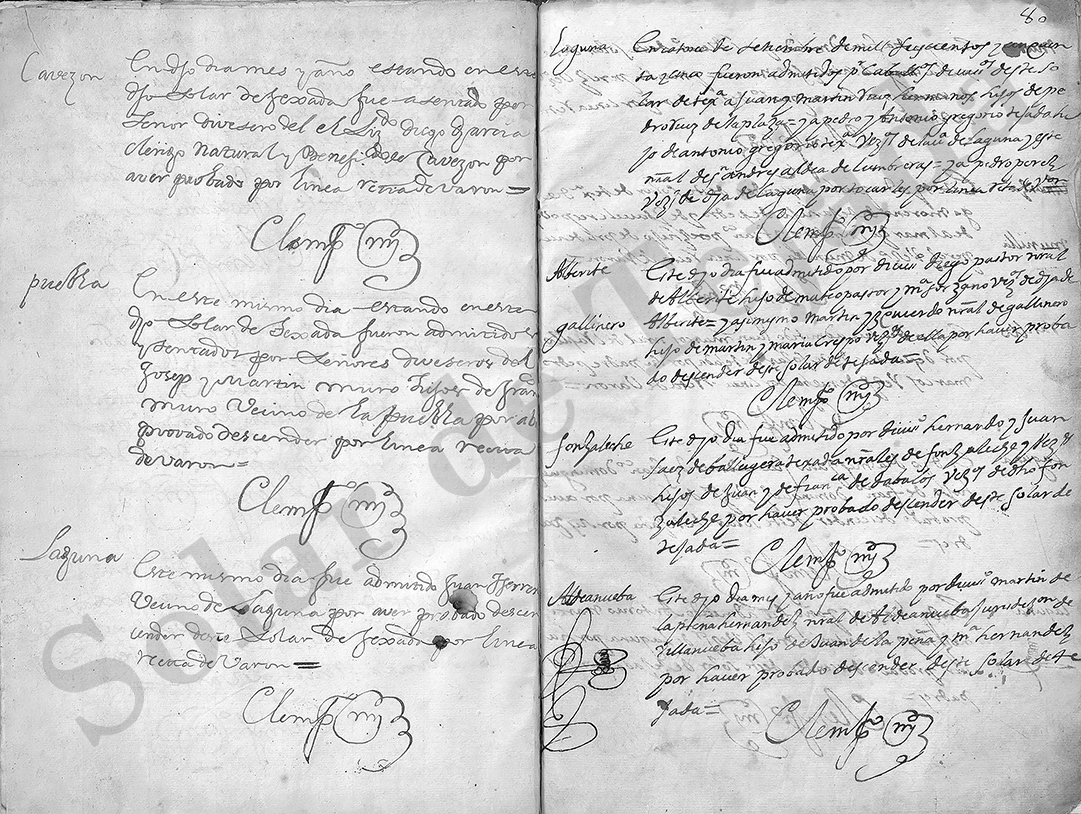 Cavezon
En dho dia mes y año estando en este
dho Solar de Texada fue asentado por
Señor divesero del el Liz.do diego Garcia
Clerigo Natural y Benefi.do de Cavezon por
aver probado por linea recta de Varon =
Clemte
puebla
En este mismo dia estando en este
dho Solar de Texada fueron admitidos
y sentados por Señores diveseros del
Josep y Martin muro hijos de fran.
muro Vecino de la puebla por ab
provado descender por linea recta
de varon =
Clemte
Laguna
Este mismo dia fue admitido Juan
Vecino de Laguna por aver probado descen
cender deste Solar de Texada por linea
recta de Varon =
Clemte
80
Laguna
En catorce de setiembre de mill seyscentos y
fueron admitidos deste so
lar de a Juan y martin Ruiz hermanos hijos de pe
dro Ruiz de la plaza = y a pedro y Antonio gregorio tejada hi
jo de antonio gregorio de Laguna y este
andres aldea de lumbreras = y a pedro perez
de dha de laguna por tocarles por linea
Clemte
Alberite
Este dho dia fue admitido por diego pastor nral
de Alberite hijo de mateo pastor y de dha de
gallinero
Alberite = y asimysmo martin yzquierdo nral de gallinero
hijo de martin y maria Crespo de ella por haver proba
do descender deste solar de tejada =
Clemte
fonzaleche
Este dho dia fue admitido por hernando y Juan
saez de ballugera texada nrales de fonzaleche y
hijos de Juan y de fran.ca de dabalos de dho fon
zaleche por haver probado descender deste solar de
tejada =
Clemte
Aldeanueba
Este dho dia mes y año fue admitido por martin de
la peña hernandez nral de Aldeanueba de
Villanueba hijo de Juan de la peña y hernandez
por haver probado descender deste solar de te
jada =
Clemte
Solar de Tejada